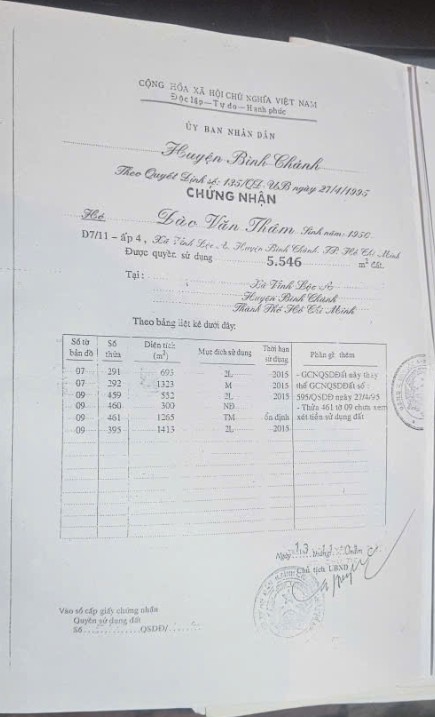 CỘNG HÒA XÃ HỘI CHỦ NGHĨA VIỆT NAM
Độc lập - Tự do - Hạnh phúc
ỦY BAN NHÂN DÂN
Huyện Bình Chánh
Theo Quyết Định số: 135/QĐ-UB ngày 27/4/1995
CHỨNG NHẬN
Hộ Đào Văn Thâm Sinh năm: 1950
D7/11 - ấp 4, Xã Vĩnh Lộc A, Huyện Bình Chánh, TP. Hồ Chí Minh
Được quyền sử dụng 5.546 m² đất.
Tại: Xã Vĩnh Lộc A
Huyện Bình Chánh
Thành Phố Hồ Chí Minh
Theo bảng liệt kê dưới đây:
Số tờ bản đồ Số thửa Diện tích (m²) Mục đích sử dụng Thời hạn sử dụng Phần ghi thêm
07 291 693 2L 2015 - GCNQSDĐất này thay
07 292 1323 M 2015 thế GCNQSDĐất số
09 459 552 2L 2015 595/QSDĐ ngày 27/4/95
09 460 300 NĐ - Thửa 461 tờ 09 chưa xem
09 461 1265 TM ổn định xét tiền sử dụng đất
09 395 1413 2L 2015
Ngày 13 tháng năm
Chủ tịch UBND
Vào sổ cấp giấy chứng nhận
Quyền sử dụng đất
Số QSDĐ/